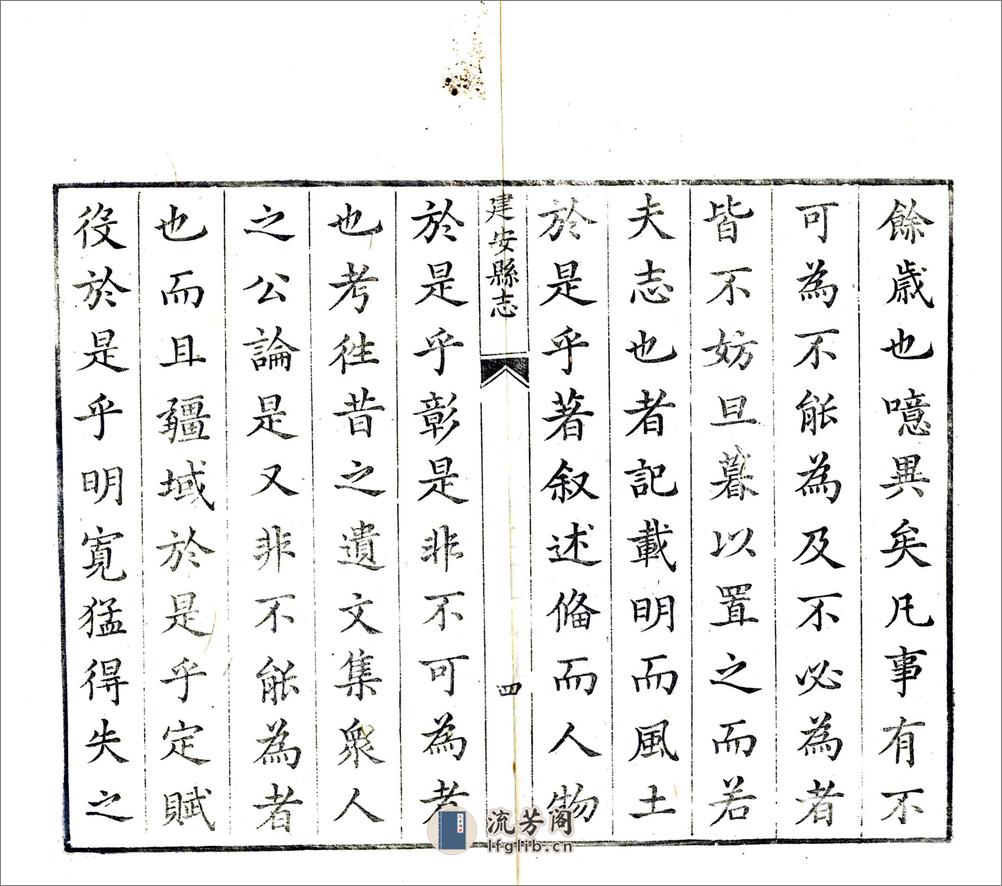 餘歲也噫異矣凡事有不
可為不能為及不必為者
皆不妨旦暮以置之而若
夫志也者記載明而風土
於是乎著叙述俻而人物
建安縣志
四
於是乎彰是非不可為者
也考徃昔之遺文集衆人
之公論是又非不能為者
也而且疆域於是乎定賦
役於是乎明寬猛得失之
流芳阁
lfglib.cn